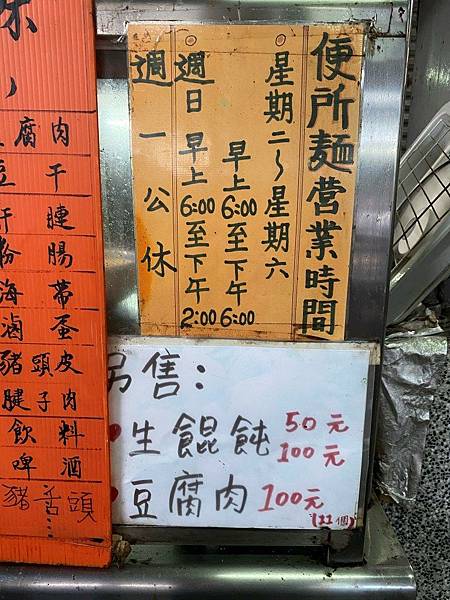 便所麵營業時間
星期二～星期六
早上6:00至下午6:00
週日 早上6:00至下午2:00
週一公休
味
腐肉
豆干
腱
粉腸
海帶
滷蛋
豬頭皮
腱子肉
飲料
啤酒
豬舌頭...
另售:
生餛飩 50元
100元
豆腐肉 100元
(11個)